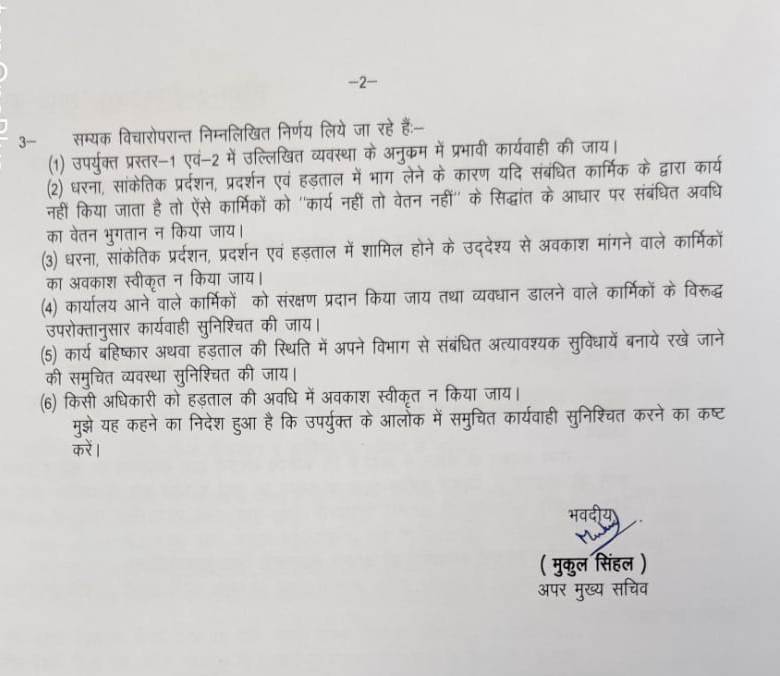 –2–
3– सम्यक विचारोपरान्त निम्नलिखित निर्णय लिये जा रहे हैं:–
(1) उपर्युक्त प्रस्तर–1 एवं–2 में उल्लिखित व्यवस्था के अनुक्रम में प्रभावी कार्यवाही की जाय।
(2) धरना, सांकेतिक प्रर्दशन, प्रदर्शन एवं हड़ताल में भाग लेने के कारण यदि संबंधित कार्मिक के द्वारा कार्य
नहीं किया जाता है तो ऐंसे कार्मिकों को "कार्य नहीं तो वेतन नहीं" के सिद्धांत के आधार पर संबंधित अवधि
का वेतन भुगतान न किया जाय।
(3) धरना, सांकेतिक प्रर्दशन, प्रदर्शन एवं हड़ताल में शामिल होने के उद्देश्य से अवकाश मांगने वाले कार्मिकों
का अवकाश स्वीकृत न किया जाय।
(4) कार्यालय आने वाले कार्मिकों को संरक्षण प्रदान किया जाय तथा व्यवधान डालने वाले कार्मिकों के विरूद्ध
उपरोक्तानुसार कार्यवाही सुनिश्चित की जाय।
(5) कार्य बहिष्कार अथवा हड़ताल की स्थिति में अपने विभाग से संबंधित अत्यावश्यक सुविधायें बनाये रखे जाने
की समुचित व्यवस्था सुनिश्चित की जाय।
(6) किसी अधिकारी को हड़ताल की अवधि में अवकाश स्वीकृत न किया जाय।
मुझे यह कहने का निदेश हुआ है कि उपर्युक्त के आलोक में समुचित कार्यवाही सुनिश्चित करने का कष्ट
करें।
भवदीय
( मुकुल सिंहल )
अपर मुख्य सचिव